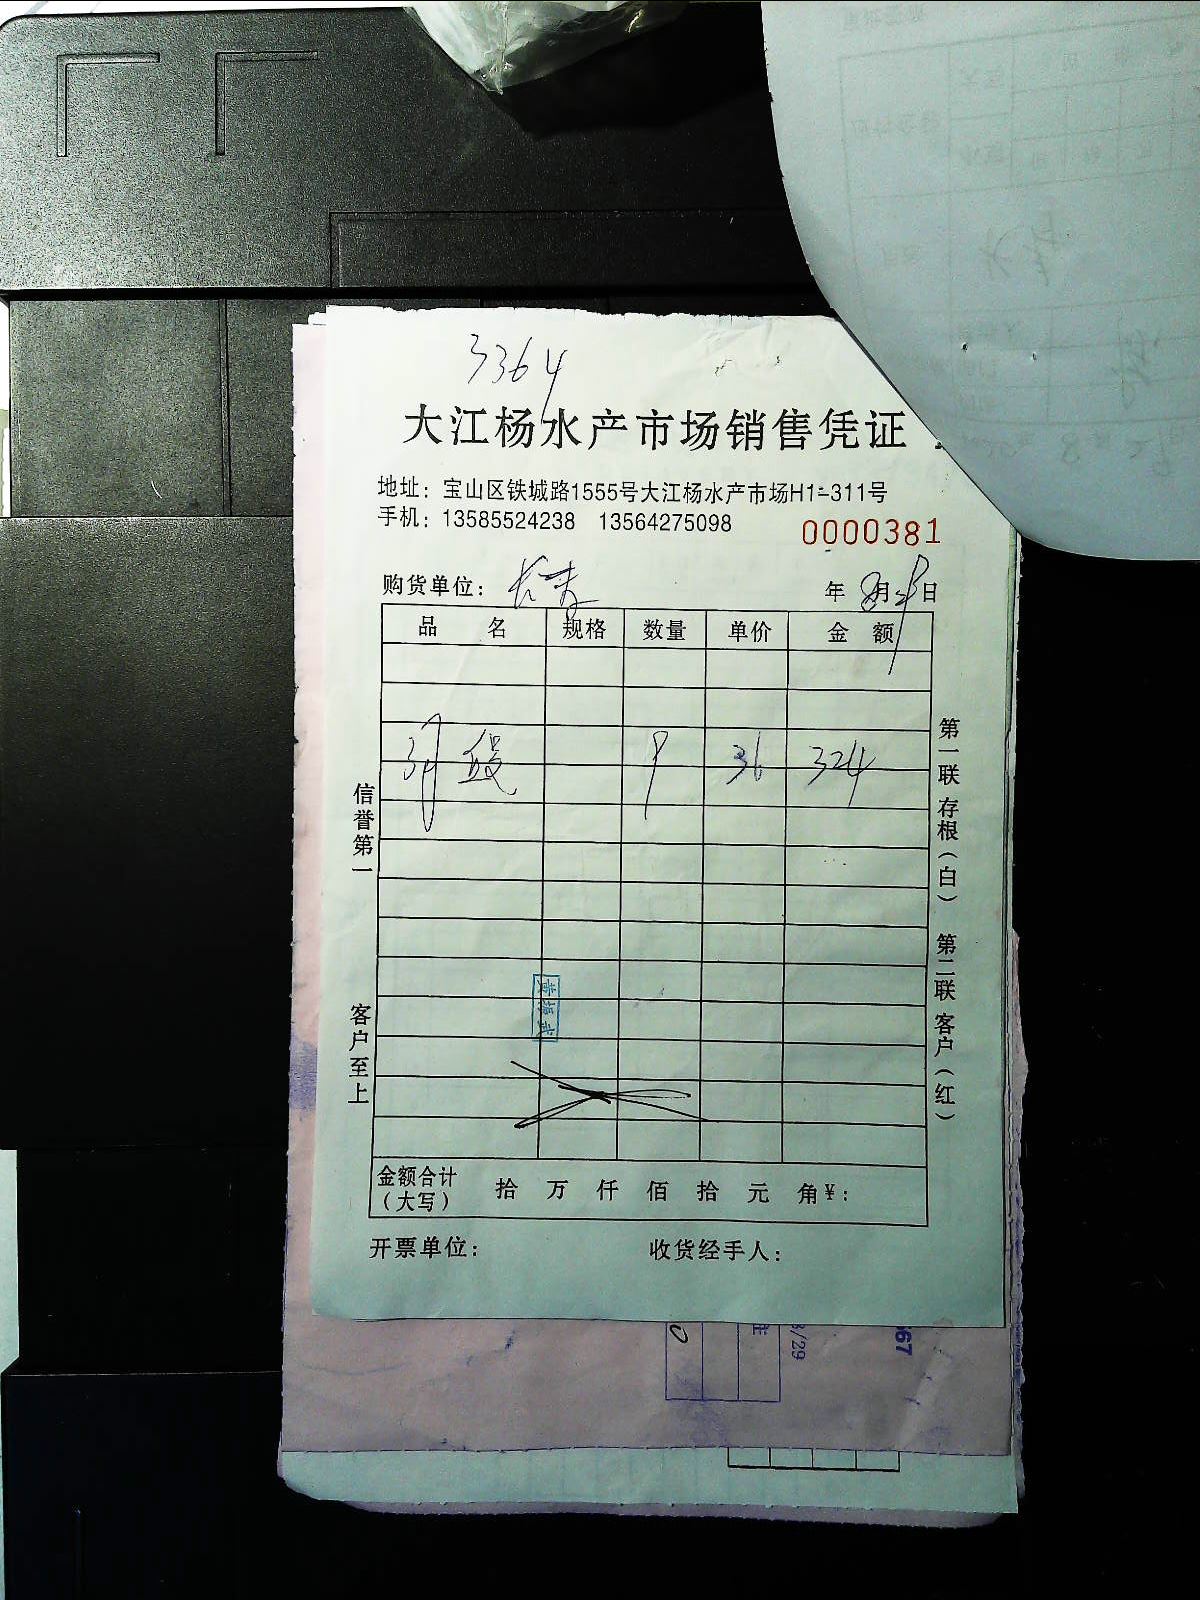 3364
大江杨水产市场销售凭证
地址：宝山区铁城路1555号大江杨水产市场H1-311号
手机：13585524238 13564275098
0000381
购货单位： 年 8月29日
品 名 规格 数量 单价 金 额
9 36 324
信誉第一
客户至上
第一联 存根（白）
第二联 客户（红）
金额合计
（大写） 拾 万 仟 佰 拾 元 角¥：
开票单位： 收货经手人：
/29
567